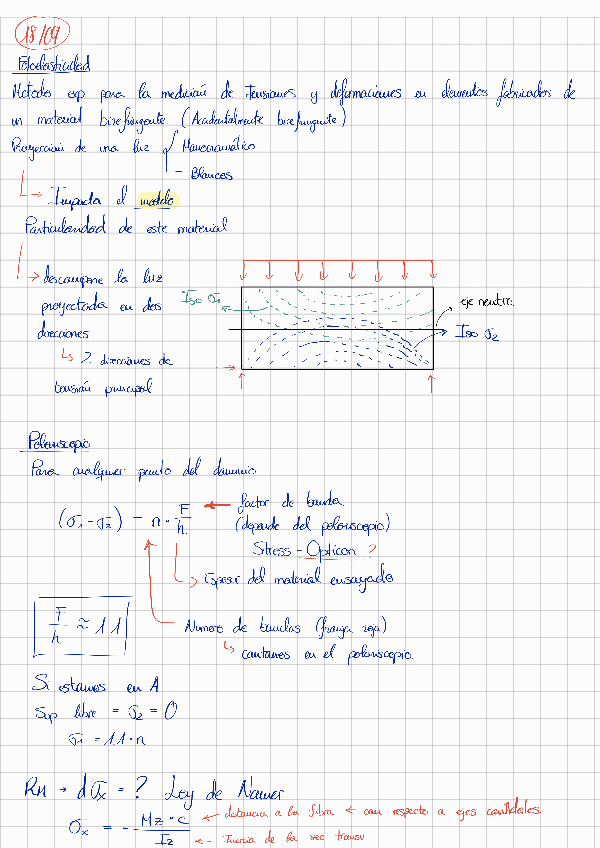 18/09
Fotoelasticidad
Metodo exp para la medición de Tensiones y deformaciones en elementos fabricados de
un material birefringente (Accidentalmente birefringente)
Proyección de una luz Monocromático
- Blancos
Impacta el modelo
Particularidad de este material
descompone la luz
proyectada en dos
direcciones
2 direcciones de
tensión principal
Iso σ1
eje neutro
Iso σ2
Polariscopio
Para cualquier punto del dominio
(σ1 - σ2) = n · F/h
factor de banda
(depende del polariscopio)
Stress - Optican ?
Espesor del material ensayado
F/h ≈ 11
Numero de bandas (franja roja)
contamos en el polariscopio.
Si estamos en A
Sup libre = σ2 = 0
σ1 = 11 · n
RM → dσx = ? Ley de Navier
σx = - Mz · c / Iz
distancia a la fibra ← con respecto a ejes centroidales
← Inercia de la sec transv